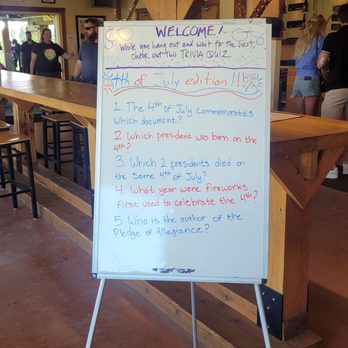 WELCOME!
While you hang out and wait for the host,
check out this TRIVIA QUIZ
4th of July edition!!!
1. The 4th of July commemorates
which document?
2. Which president was born on the
4th?
3. Which 2 presidents died on
the same 4th of July?
4. What year were fireworks
first used to celebrate the 4th?
5. Who is the author of the
Pledge of Allegiance?